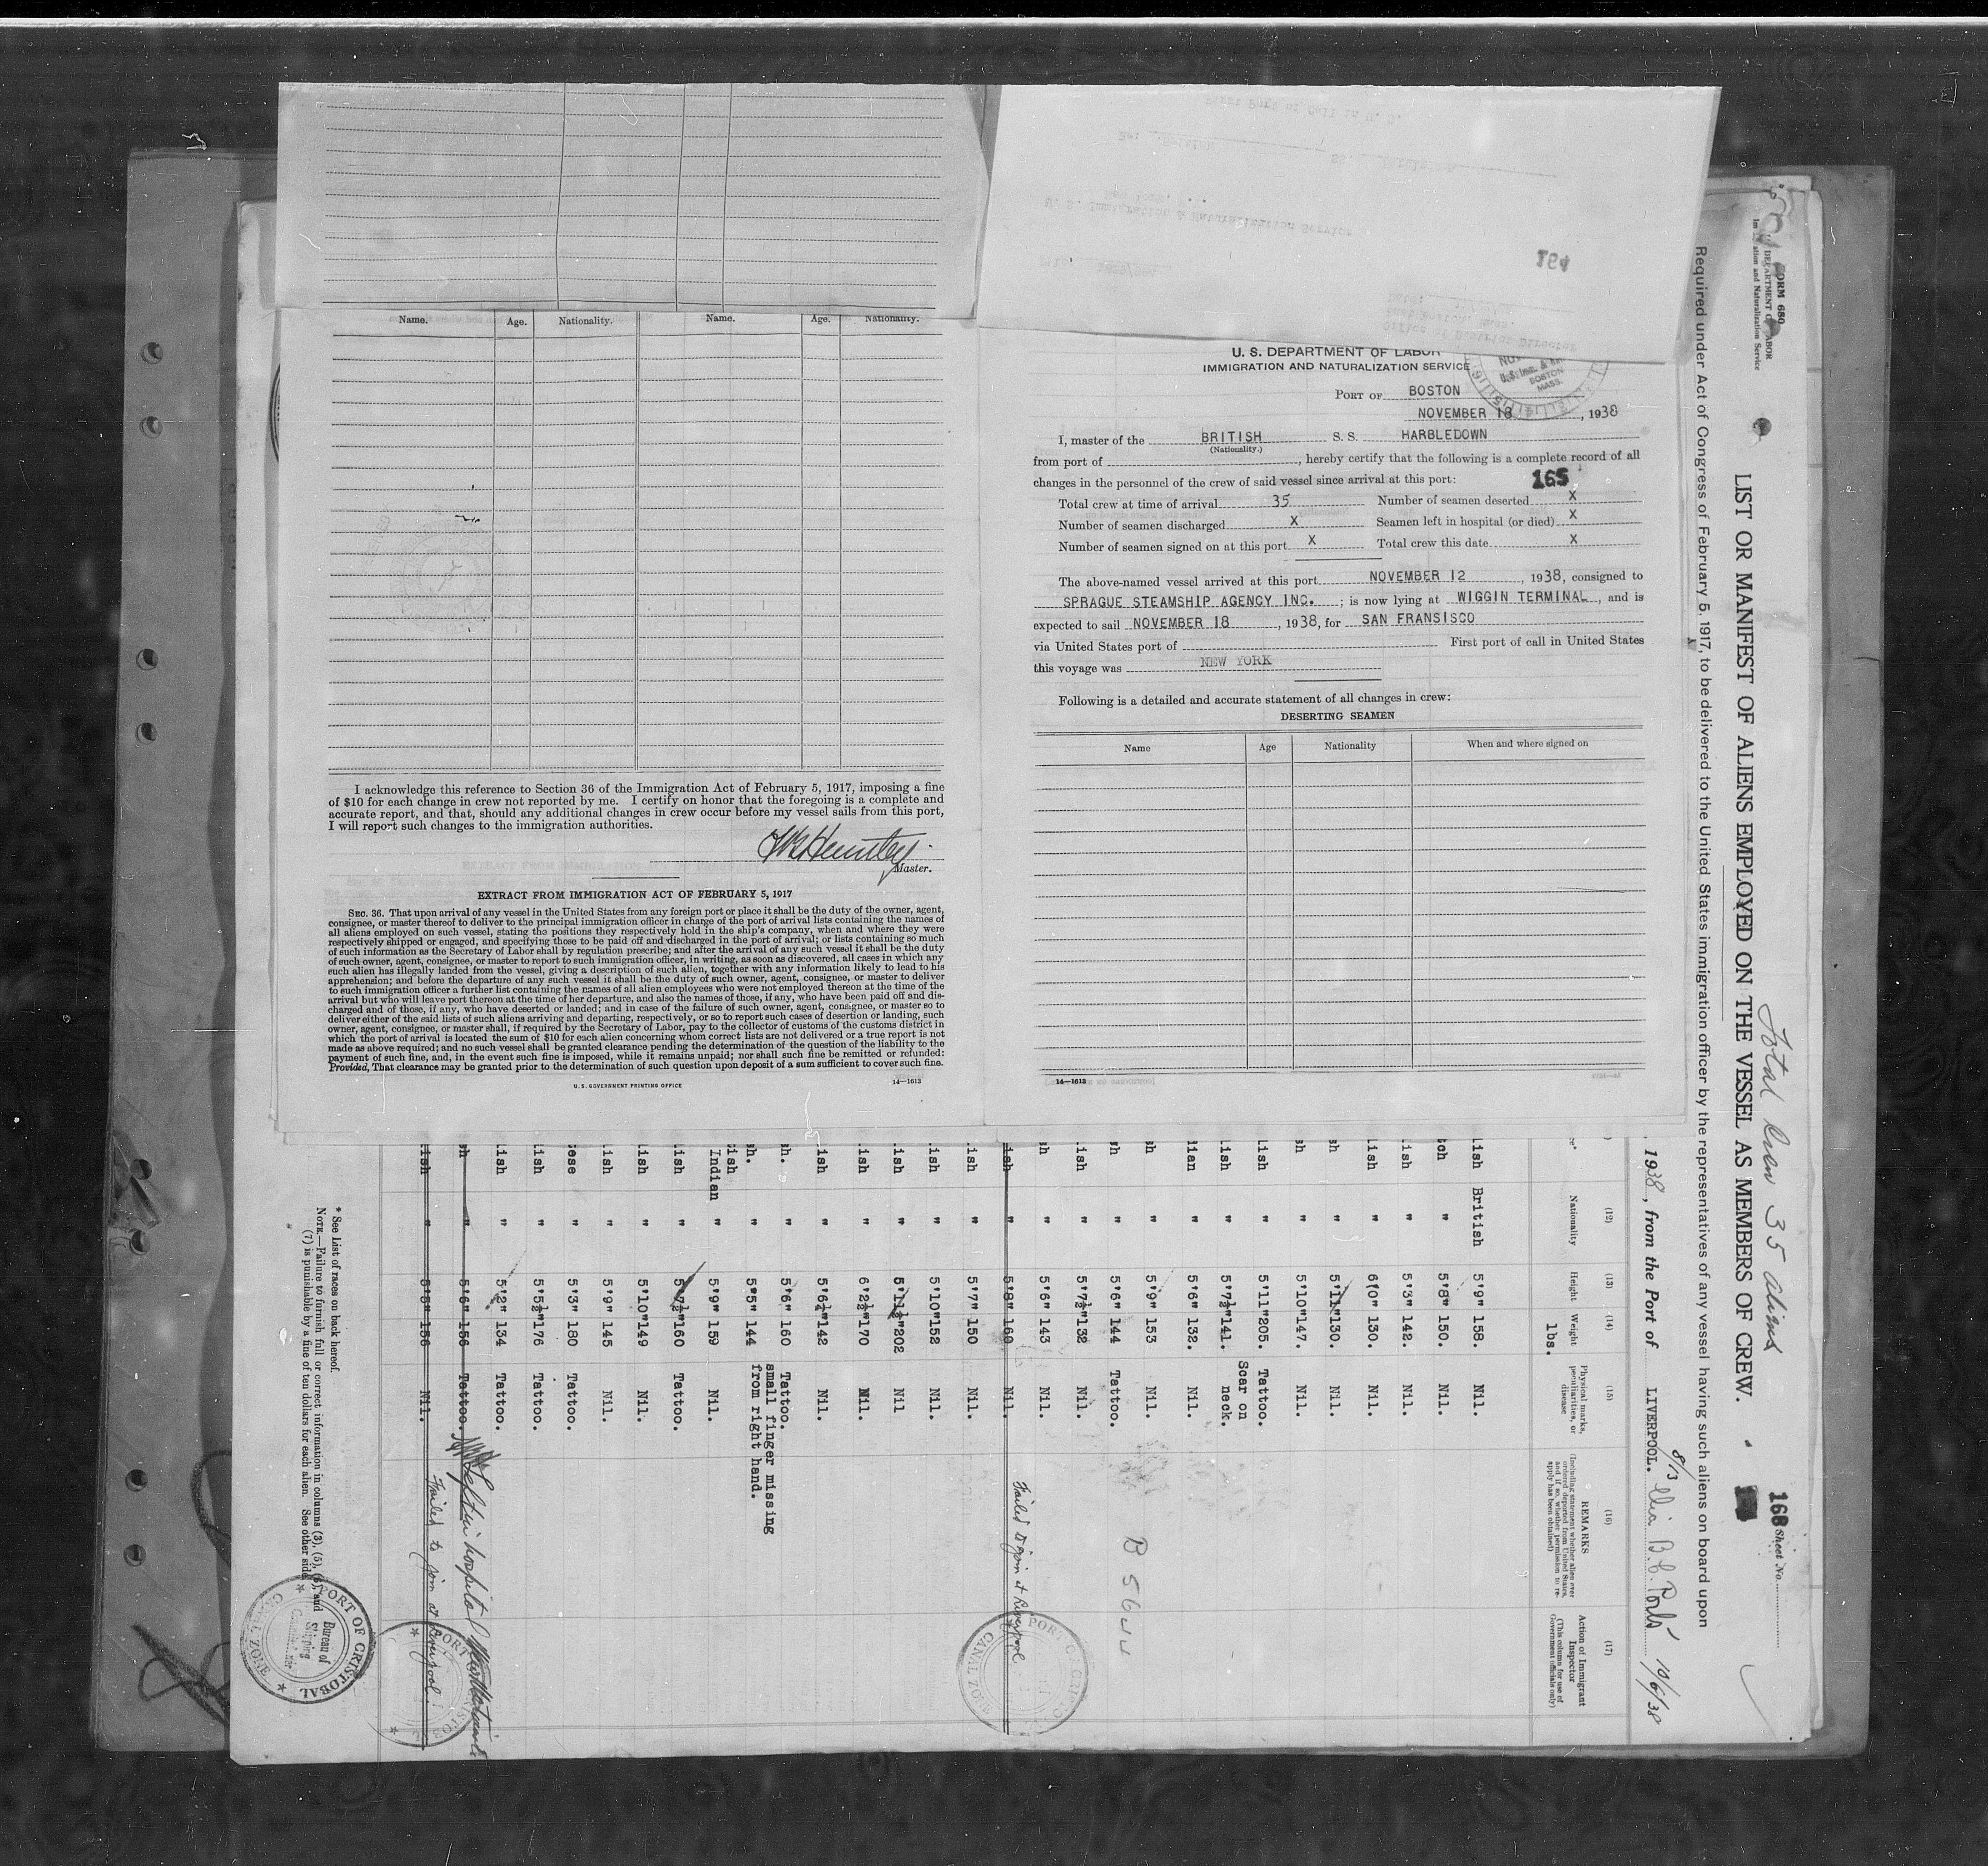 Name. Age. Nationality. Name. Age. Nationality.
I acknowledge this reference to Section 36 of the Immigration Act of February 5, 1917, imposing a fine
of $10 for each change in crew not reported by me. I certify on honor that the foregoing is a complete and
accurate report, and that, should any additional changes in crew occur before my vessel sails from this port,
I will report such changes to the immigration authorities.
Master.
EXTRACT FROM IMMIGRATION ACT OF FEBRUARY 5, 1917
SEC. 36. That upon arrival of any vessel in the United States from any foreign port or place it shall be the duty of the owner, agent,
consignee, or master thereof to deliver to the principal immigration officer in charge of the port of arrival lists containing the names of
all aliens employed on such vessel, stating the positions they respectively hold in the ship's company, when and where they were
respectively shipped or engaged, and specifying those to be paid off and discharged in the port of arrival; or lists containing so much
of such information as the Secretary of Labor shall by regulation prescribe; and after the arrival of any such vessel it shall be the duty
of such owner, agent, consignee, or master to report to such immigration officer, in writing, as soon as discovered, all cases in which any
such alien has illegally landed from the vessel, giving a description of such alien, together with any information likely to lead to his
apprehension; and before the departure of any such vessel it shall be the duty of such owner, agent, consignee, or master to deliver
to such immigration officer a further list containing the names of all alien employees who were not employed thereon at the time of the
arrival but who will leave port thereon at the time of her departure, and also the names of those, if any, who have been paid off and dis-
charged and of those, if any, who have deserted or landed; and in case of the failure of such owner, agent, consignee, or master so to
deliver either of the said lists of such aliens arriving and departing, respectively, or so to report such cases of desertion or landing, such
owner, agent, consignee, or master shall, if required by the Secretary of Labor, pay to the collector of customs of the customs district in
which the port of arrival is located the sum of $10 for each alien concerning whom correct lists are not delivered or a true report is not
made as above required; and no such vessel shall be granted clearance pending the determination of the question of the liability to the
payment of such fine, and, in the event such fine is imposed, while it remains unpaid; nor shall such fine be remitted or refunded:
Provided, That clearance may be granted prior to the determination of such question upon deposit of a sum sufficient to cover such fine.
U. S. GOVERNMENT PRINTING OFFICE 14—1613
164
U. S. DEPARTMENT OF LABOR
IMMIGRATION AND NATURALIZATION SERVICE
BOSTON
MASS.
PORT OF BOSTON
NOVEMBER 18, 1938
I, master of the BRITISH S. S. HARBLEDOWN
(Nationality.)
from port of , hereby certify that the following is a complete record of all
changes in the personnel of the crew of said vessel since arrival at this port:
165
Total crew at time of arrival 35 Number of seamen deserted X
Number of seamen discharged X Seamen left in hospital (or died) X
Number of seamen signed on at this port X Total crew this date X
The above-named vessel arrived at this port NOVEMBER 12, 1938, consigned to
SPRAGUE STEAMSHIP AGENCY INC. ; is now lying at WIGGIN TERMINAL, and is
expected to sail NOVEMBER 18, 1938, for SAN FRANSISCO
via United States port of First port of call in United States
this voyage was NEW YORK
Following is a detailed and accurate statement of all changes in crew:
DESERTING SEAMEN
Name Age Nationality When and where signed on
14—1613
FORM 680
DEPARTMENT OF LABOR
Immigration and Naturalization Service
Total Crew 35 aliens
168 Sheet No.
LIST OR MANIFEST OF ALIENS EMPLOYED ON THE VESSEL AS MEMBERS OF CREW.
Required under Act of Congress of February 5, 1917, to be delivered to the United States immigration officer by the representatives of any vessel having such aliens on board upon
, 1938, from the Port of LIVERPOOL. 8/13 via B.C. Ports 10/6/38
(12) (13) (14) (15) (16) (17)
Nationality
Height
Weight
lbs.
Physical marks, peculiarities, or disease
REMARKS
(Including statement whether alien ever ordered deported from United States, and if so, whether permission to reapply has been obtained)
Action of Immigrant Inspector
(This column for use of Government officials only)
lish British 5'9" 158. Nil.
tch " 5'8" 150. Nil.
lish " 5'3" 142. Nil.
lish " 6'0" 130. Nil.
sh " 5'11" 130. Nil.
sh " 5'10" 147. Nil.
lish " 5'11" 205. Tattoo.
lish " 5'7½" 141. Scar on neck.
lian " 5'6" 132. Nil.
sh " 5'9" 153 Nil.
sh " 5'6" 144 Tattoo. B 5644
lish " 5'7½" 132 Nil.
sh " 5'6" 143 Nil.
lish " 5'8" 160 Nil. Failed to join at Liverpool
lish " 5'7" 150 Nil.
lish " 5'10" 152 Nil.
lish " 5'11½" 202 Nil
lish " 6'2½" 170 Nil.
lish " 5'6½" 142 Nil.
sh. " 5'6" 160 Tattoo.
small finger missing
sh. " 5'5" 144 from right hand.
ish
Indian " 5'9" 159 Nil.
lish " 5'7½" 160 Tattoo.
lish " 5'10" 149 Nil.
lish " 5'9" 145 Nil.
ese " 5'3" 180 Tattoo.
lish " 5'5½" 176 Tattoo.
lish " 5'2" 134 Tattoo.
sh " 5'6" 156 Tattoo. Left in hospital
lish " 5'8" 156 Nil. Failed to join at Liverpool.
* See List of races on back hereof.
NOTE.—Failure to furnish full or correct information in columns (3), (5), (6), and
(7) is punishable by a fine of ten dollars for each alien. See other side.
PORT OF CRISTOBAL
Bureau of
Shipping
CANAL ZONE
PORT OF CRISTOBAL
CANAL ZONE